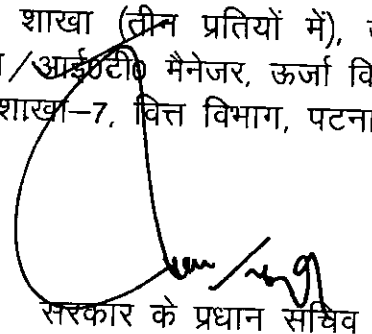 शाखा (तीन प्रतियों में),
/आई०टी० मैनेजर, ऊर्जा वि
शाखा–7, वित्त विभाग, पटना
सरकार के प्रधान सचिव